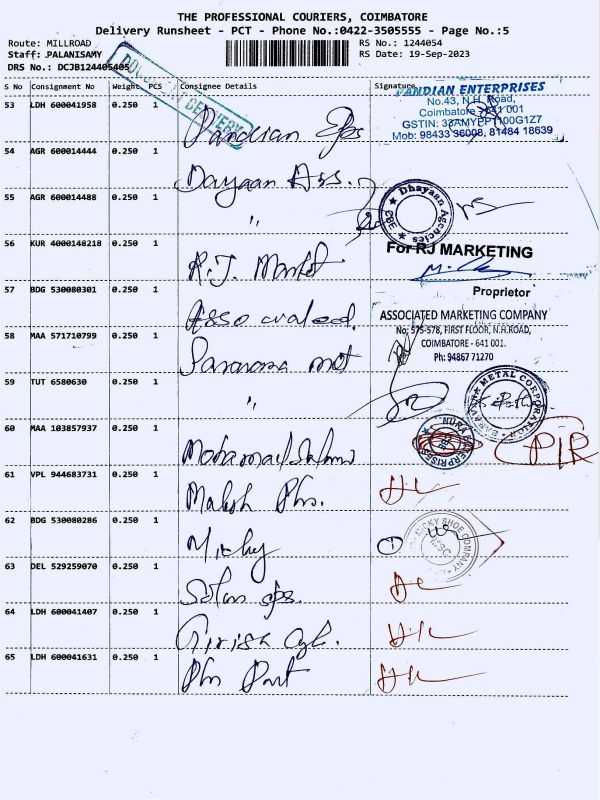 THE PROFESSIONAL COURIERS, COIMBATORE
Delivery Runsheet - PCT - Phone No.:0422-3505555 - Page No.:5
Route: MILLROAD RS No.: 1244054
Staff: PALANISAMY RS Date: 19-Sep-2023
DRS No.: DCJB124405405
S No Consignment No Weight PCS Consignee Details Signature
DOCUMENT DELIVERY
53 LDH 600041958 0.250 1 Pandian Eps
PANDIAN ENTERPRISES
No.43, N.H. Road,
Coimbatore 641 001
GSTIN: 33AMYPP1100G1Z7
Mob: 98433 36008, 81484 18639
54 AGR 600014444 0.250 1 Dayaan Ass.
55 AGR 600014488 0.250 1 "
Dhayaan Agencies
CBE
56 KUR 4000148218 0.250 1 R.J. Market
For RJ MARKETING
Proprietor
57 BDG 530080301 0.250 1 Asso
ASSOCIATED MARKETING COMPANY
No: 575-578, FIRST FLOOR, N.H.ROAD,
COIMBATORE - 641 001.
Ph: 94867 71270
58 MAA 571710799 0.250 1 met
59 TUT 6580630 0.250 1 "
SARAVANA METAL CORPORATION
60 MAA 103857937 0.250 1 Mohamad
NURA ENTERPRISES
61 VPL 944683731 0.250 1 Mahesh Phs.
62 BDG 530080286 0.250 1 Micky
MICKY SHOE COMPANY
MSC
63 DEL 529259070 0.250 1 eps.
64 LDH 600041407 0.250 1 Girish Cyl.
65 LDH 600041631 0.250 1 Phs Part